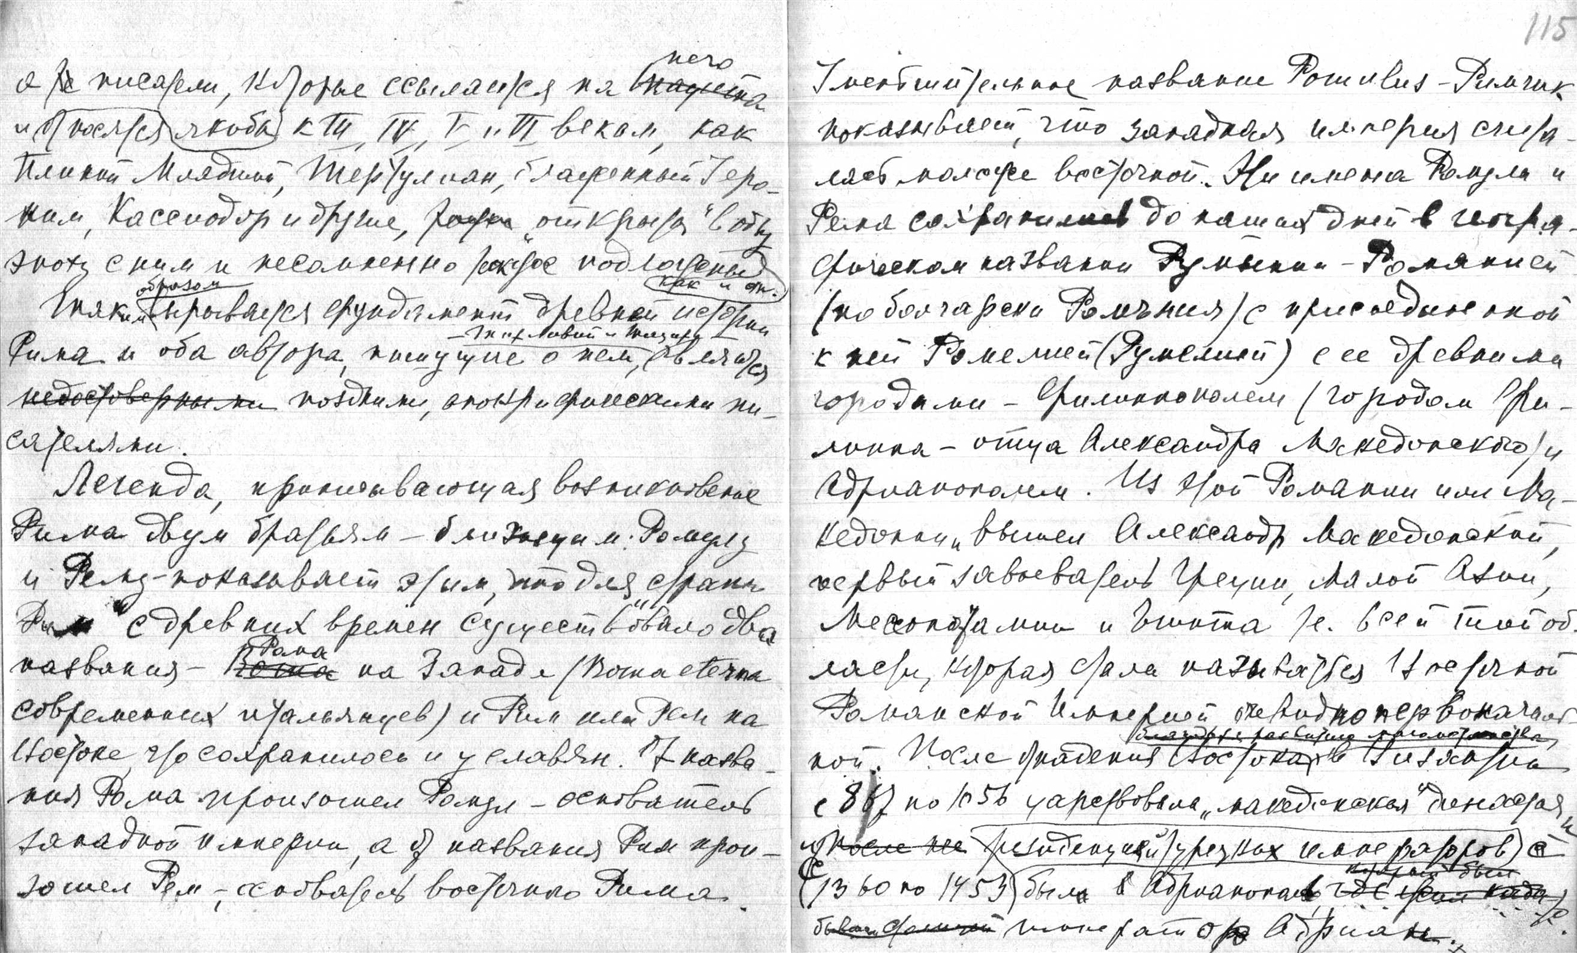 него
а те писатели, которые ссылаются на Тацита
и относятся якобы к III, IV, V и VI векам, как
Плиний Младший, Тертулиан, блаженный Иеро-
ним, Кассиодор и другие, "открыты" в одну
эпоху с ним и несомненно также подложны
как и он.
Таким образом взрывается фундамент древней истории
Тит Ливий и Тацит
Рима и оба автора, пишущие о нем, являются
недостоверными поздними, апокрифическими пи-
сателями.
Легенда, приписывающая возникновение
Рима двум братьям – близнецам: Ромулу
и Рему – показывает этим, что для "страны
Рим" с древних времен существовало два
Рома
названия – Roma на Западе (Roma eterna
современных итальянцев) и Рим или Рем на
Востоке, что сохранилось и у славян. От назва-
ния Рома произошел Ромул – основатель
западной империи, а от названия Рим прои-
зошел Рем – основатель восточного Рима.
115
Уменьшительное название Romulus – Римчик
показывает, что западная империя счита-
лась моложе восточной. Эти имена Ромула и
Рема сохранились до наших дней в геогра-
фическом названии Румынии – Романией
(по болгарски Ромъния) с присоединенной
к ней Ромелией (Румелией) с ее древними
городами – Филиппополем (городом Фи-
липпа – отца Александра Македонского) и
Адрианополем. Из этой Романии или Ма-
кедонии и вышел Александр Македонский,
первый завоеватель Греции, Малой Азии,
Месопотамии и Египта т.е. всей той об-
ласти, которая стала называться Восточной
Романской Империей, очевидно первоначаль-
ной. После отпадения Востока в Византии
с 867 по 1056 царствовала "македонская" династия и
после нее резиденцией турецких императоров с
(с 1360 по 1453) был Адрианополь, где
который был
императором Адриан.